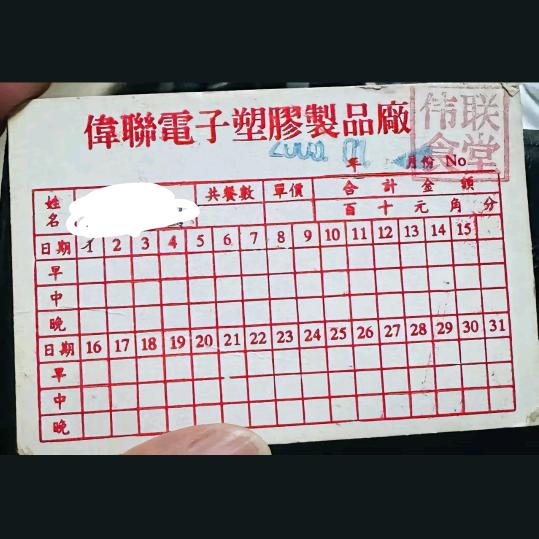 偉聯電子塑膠製品廠
伟联
食堂
2000年 01 月份 No
姓名 共餐數 單價 合計金額
百十元角分
日期 1 2 3 4 5 6 7 8 9 10 11 12 13 14 15
早
中
晚
日期 16 17 18 19 20 21 22 23 24 25 26 27 28 29 30 31
早
中
晚